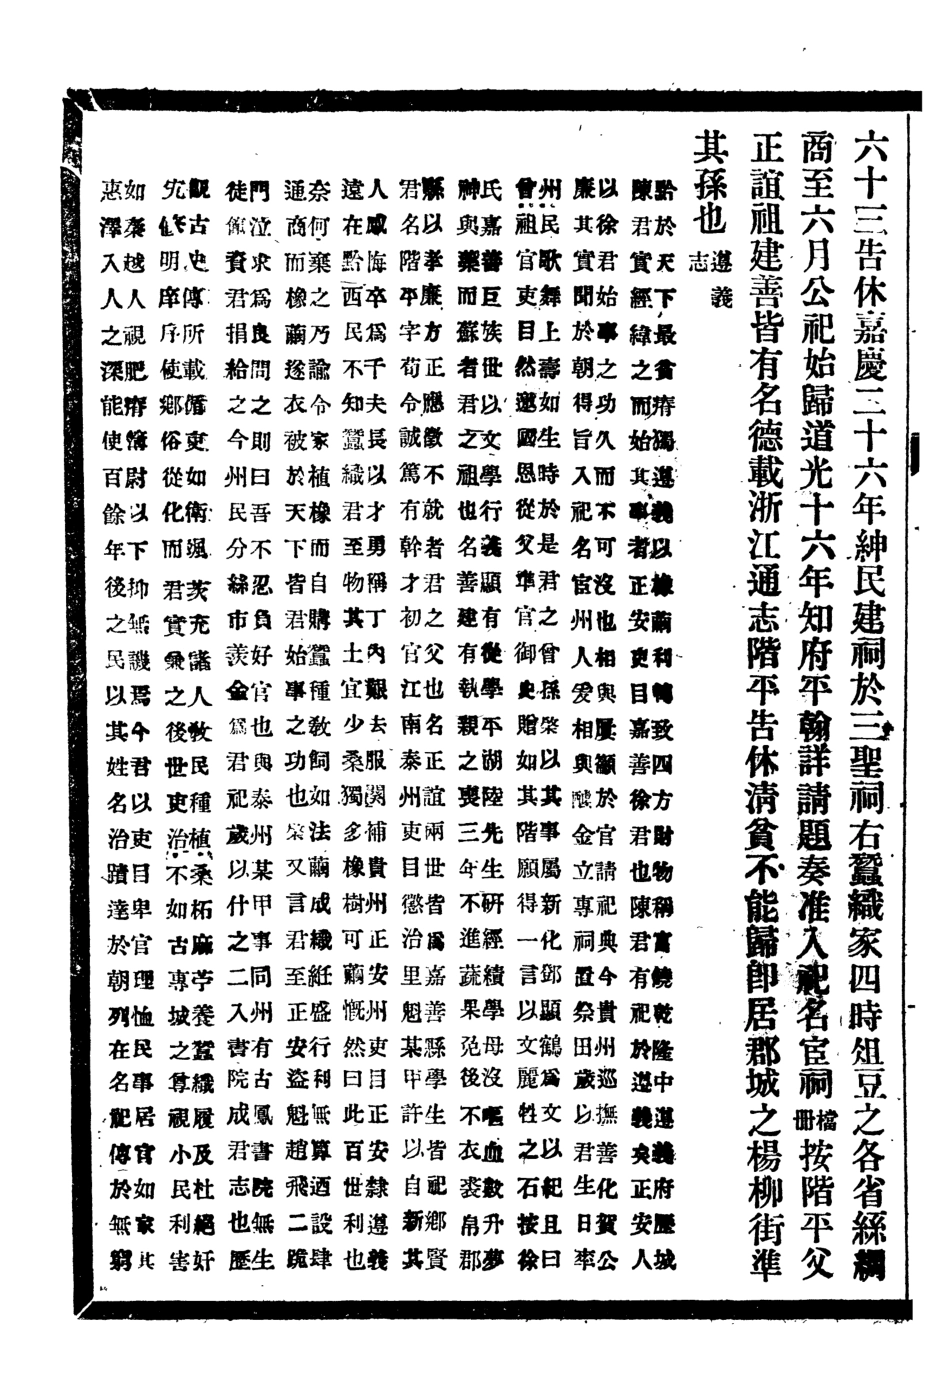 六十三告休嘉慶二十六年紳民建祠於三聖祠右蠶織家四時俎豆之各省絲綢
商至六月公祀始歸道光十六年知府平翰詳請題奏准入祀名宦祠檔冊按階平父
正誼祖建善皆有名德載浙江通志階平告休清貧不能歸卽居郡城之楊柳街準
其孫也遵義志
黔於天下最貧瘠獨遵義以橡繭利轉致四方財物稱富饒乾隆中遵義府歷城
陳君實經緯之而始其事者正安吏目嘉善徐君也陳君有祀於遵義矣正安人
以徐君始事之功久而不可沒也相與屢籲於官請祀典今貴州巡撫善化賀公
廉其實聞於朝得旨入祀名宦州人爰相與醵金立專祠置祭田歲以君生日率
州民歌舞上壽如生時於是君之曾孫棨以其事屬新化鄧顯鶴爲文以紀且曰
曾祖官吏目然邀國恩從父準官御史贈如其階願得一言以文麗牲之石按徐
氏嘉善巨族世以文學行義顯有從學平湖陸先生研經績學母沒嘔血數升夢
神與藥而蘇者君之祖也名善建有執親之喪三年不進蔬果免後不衣裘帛郡
縣以孝廉方正應徵不就者君之父也名正誼兩世皆爲嘉善縣學生皆祀鄉賢
君名階平字荀令誠篤有幹才初官江南泰州吏目懲治里魁某甲許以自新其
人感悔卒爲千夫長以才勇稱丁內艱去服闋補貴州正安州吏目正安隸遵義
遠在黔西民不知蠶織君至物其土宜少桑獨多橡樹可繭慨然曰此百世利也
奈何棄之乃諭令家植橡而自購蠶種敎飼如法繭成織紝盛行利無算迺設肆
通商而橡繭遂衣被於天下皆君始事之功也棨又言君至正安盜魁趙飛二跪
門泣求爲良問之則曰吾不忍負好官也與泰州某甲事同州有古鳳書院無生
徒餼資君捐給之今州民分絲市羨金爲君祀歲以什之二入書院成君志也歷
觀古史傳所載循吏如衛颯茨充諸人敎民種植桑柘麻苧養蠶織履及杜絕奸
宄修明庠序使鄉俗從化而君實兼之後世吏治不如古專城之尊視小民利害
如秦越人視肥瘠簿尉以下抑無譏焉今君以吏目卑官理恤民事居官如家其
惠澤入人之深能使百餘年後之民以其姓名治蹟達於朝列在名祀傳於無窮